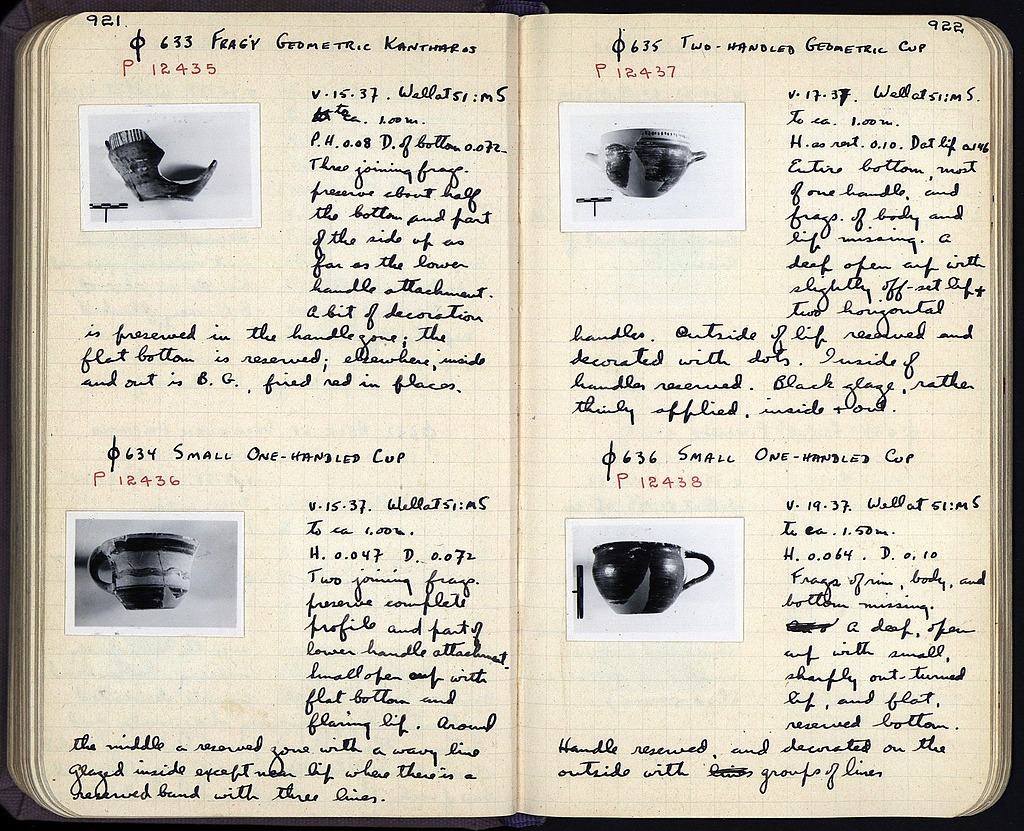 921
ϕ 633 FRAG'Y GEOMETRIC KANTHAROS
P 12435
V·15·37. Well at 51:MS
to ca. 1.00m.
P.H. 0.08 D. of bottom 0.072
Three joining frags.
preserve about half
the bottom and part
of the side up as
far as the lower
handle attachment.
A bit of decoration
is preserved in the handle zone; the
flat bottom is reserved; elsewhere, inside
and out is B.G., fired red in places.
ϕ 634 SMALL ONE-HANDLED CUP
P 12436
V·15·37. Well at 51:MS
to ca 1.00m.
H. 0.047 D. 0.072
Two joining frags.
preserve complete
profile and part of
lower handle attachment.
Small open cup with
flat bottom and
flaring lip. Around
the middle a reserved zone with a wavy line
glazed inside except near lip where there is a
reserved band with three lines.
922
ϕ 635 TWO-HANDLED GEOMETRIC CUP
P 12437
V·17·37. Well at 51:MS.
to ca. 1.00m.
H. as rest. 0.10. D at lip 0.146
Entire bottom, most
of one handle, and
frags. of body and
lip missing. A
deep open cup with
slightly off-set lip +
two horizontal
handles. Outside of lip reserved and
decorated with dots. Inside of
handles reserved. Black glaze, rather
thinly applied, inside + out.
ϕ 636 SMALL ONE-HANDLED CUP
P 12438
V·19·37. Well at 51:MS
to ca. 1.50m.
H. 0.064. D. 0.10
Frags of rim, body, and
bottom missing.
A deep, open
cup with small,
sharply out-turned
lip, and flat,
reserved bottom.
Handle reserved, and decorated on the
outside with lines groups of lines